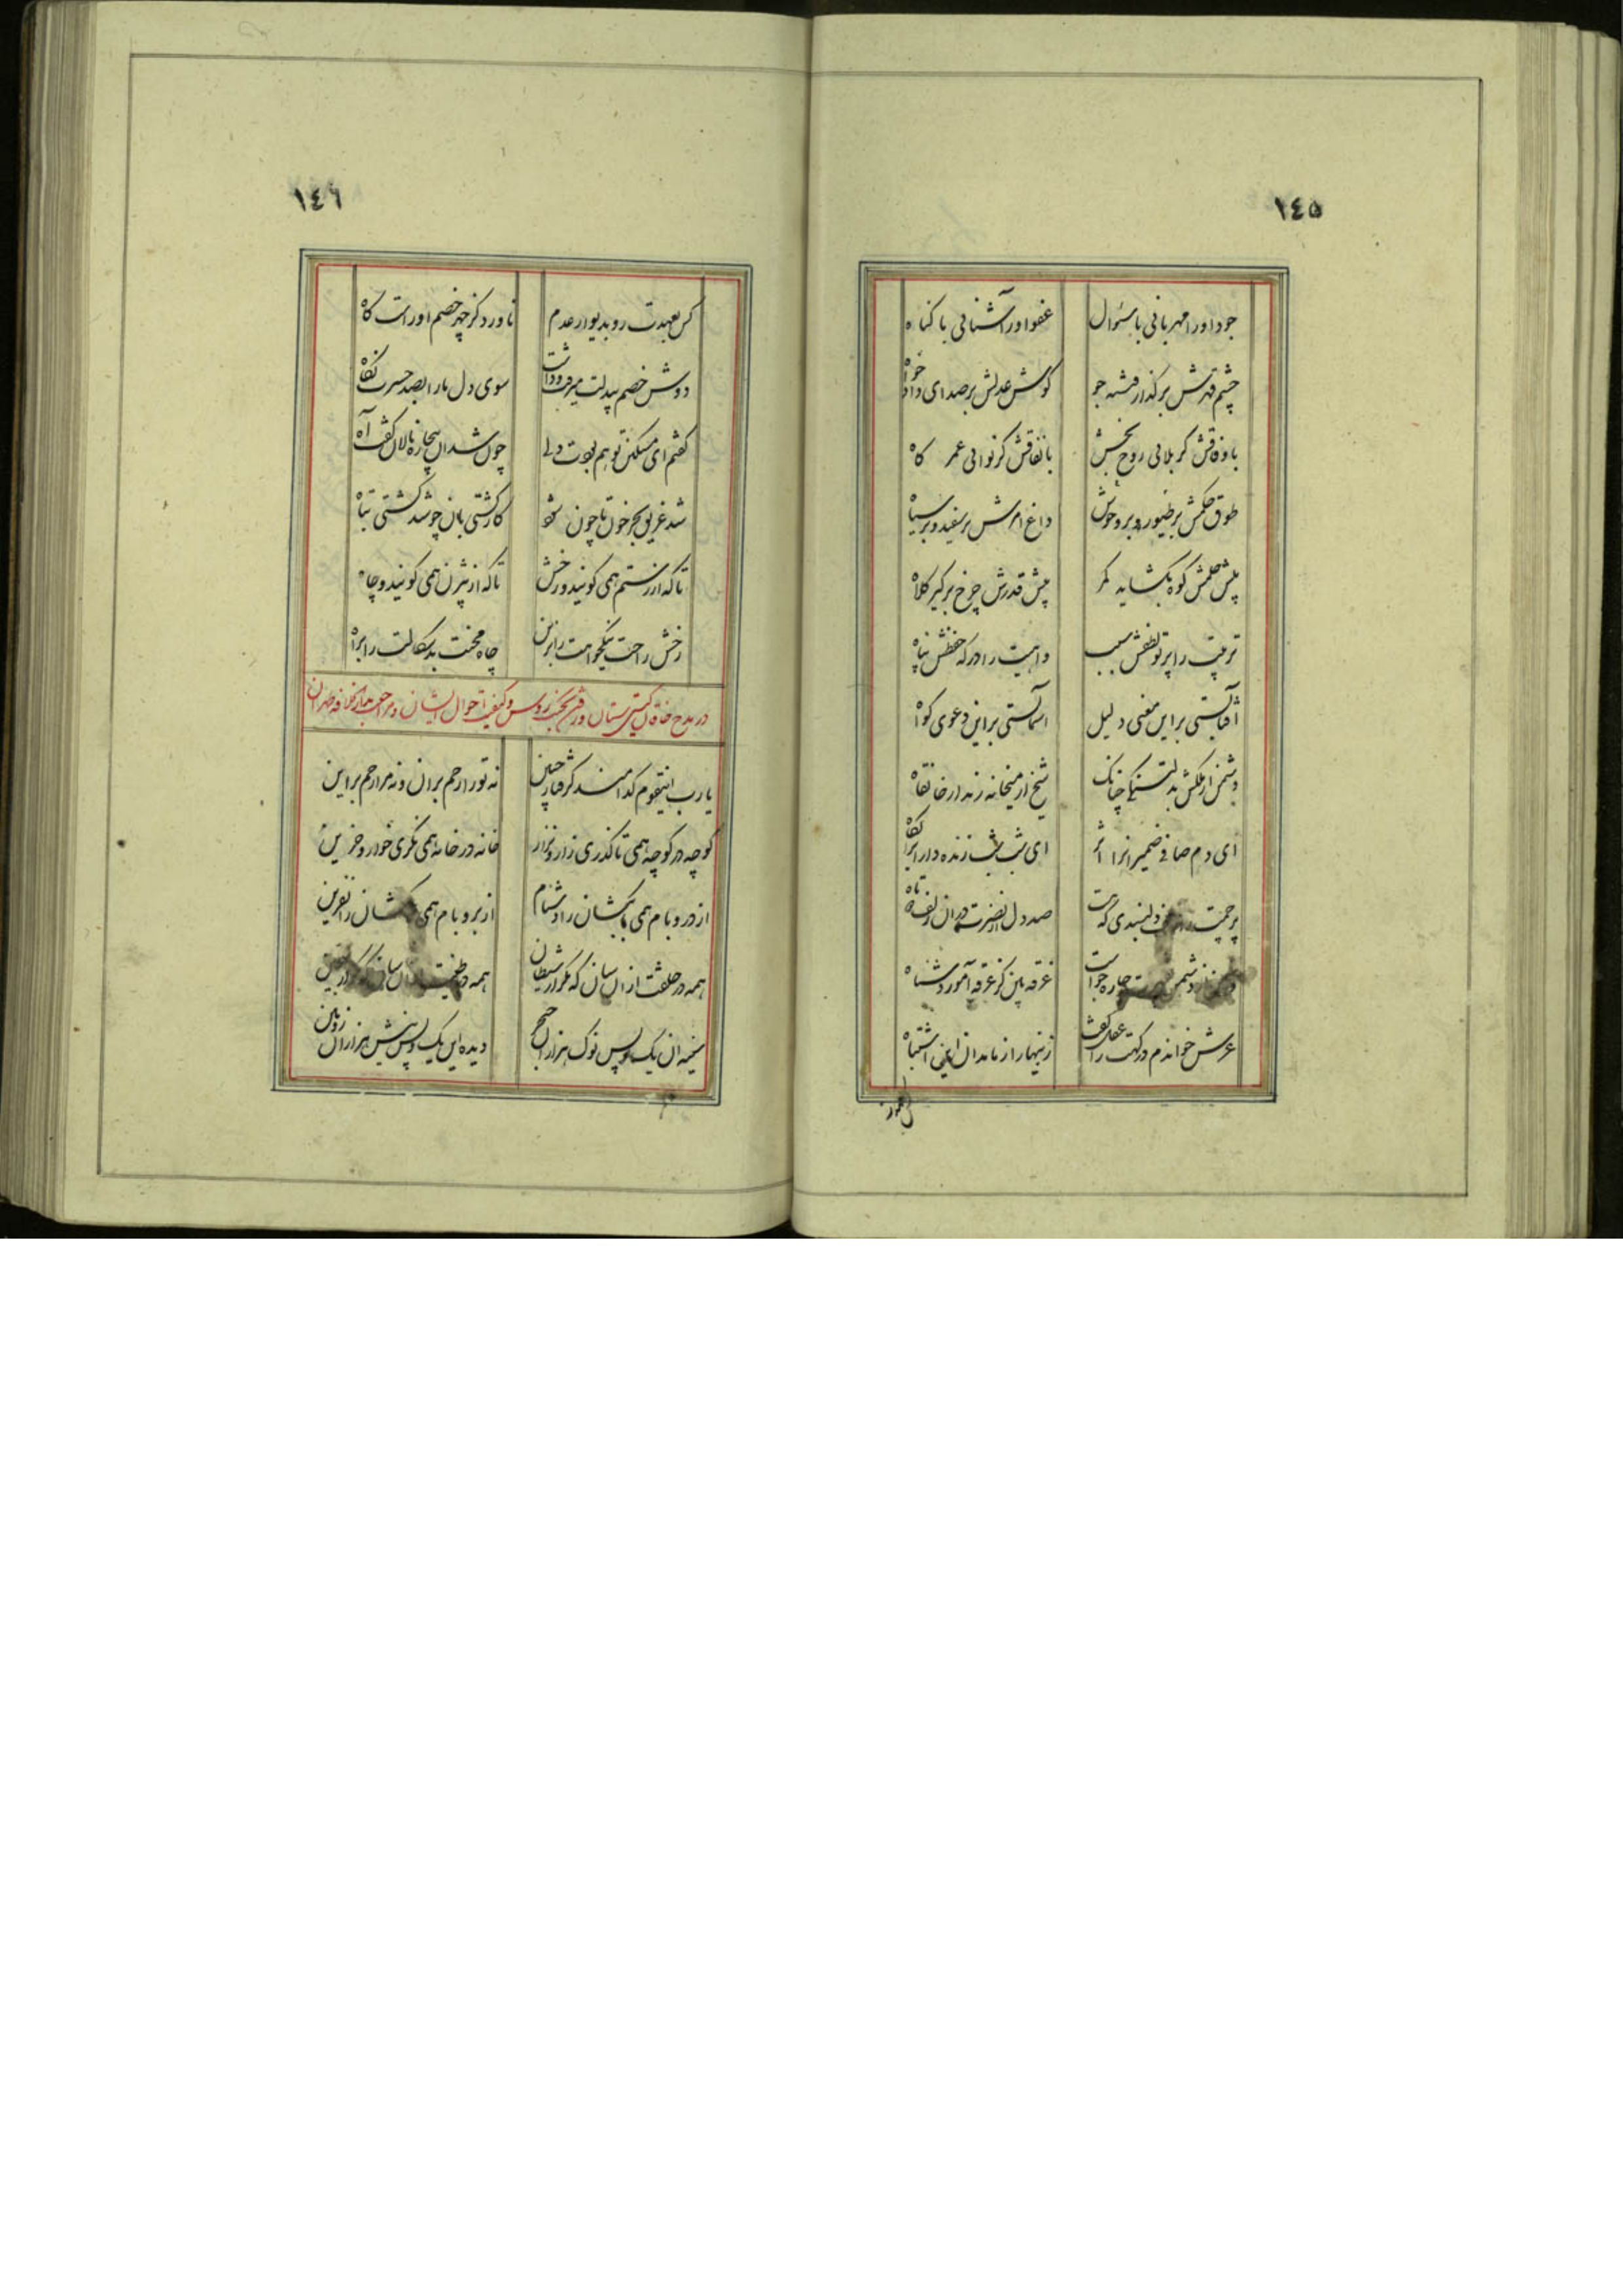 ١٤٥
جود او را مهربانی با سئوال
عفو او را آشنائی با کناه
چشم قهرش بر کذار فتنه جو
کوش عدلش بر صدای داد خواه
با وفاقش کر بلائی روح بخش
با نفاقش کر نوائی عمر کاه
طوق حکمش بر طیور و بر وحوش
داغ امرش بر سفید و بر سیاه
پیش حلمش کوه بکشاید کمر
پیش قدرش چرخ برکیر کلاه
تربیت را پرتو لطفش سبب
را درکه حفظش پناه
آفتابستی بر این معنی دلیل
آسمانستی بر این دعوی کواه
دشمن از ملکش
شیخ از میخانه رند از خانقاه
ای دم صافی ضمیرانرا اثر
ای شب شب زنده دارانرا
پرچمت دلبندی که هست
صد دل از نصرت در آن زلف
دشمن چاره جو است
غرقه بین کز غرقه آموزد شناه
عرش خواندم درکهت را عقل کفت
زینهار از ماندان این اشتباه
١٤٦
کس بعهدت رو بدیوار عدم
ناورد کز چهر خصم اوراست کاه
دوش خصم بیدلت میرفت و داشت
سوی دل ما را بصد حسرت نکاه
کفتم ای مسکین تو هم
چون شد آن بیچاره نالان کفت آه
شد غریق بحر خون تا چون شود
کار کشتی بان چو شد کشتی تباه
تا که از رستم همی کویند و رخش
تا که از بیژن همی کویند و چاه
رخش راحت نیکخواهت را بزین
چاه محنت بدسکالت را براه
در مدح خاقان کیتی ستان و کیفیت احوال ایشان و مراجعت بدار الخلافه طهران
یارب اینقوم کدامند کرفتار چنین
نه تو را رحم بر آن و نه مرا رحم بر این
کوچه در کوچه همی تا کذری زار و نزار
خانه در خانه همی نکری خوار و حزین
از در و بام همی شان را دشنام
از بر و بام همی شان را نفرین
همه در خلقت از آن سان که مکر از شیطان
همه در طینت
سینه آن یک و پس نوک هزاران خنجر
دیده این یک و پس نیش هزاران زوبین